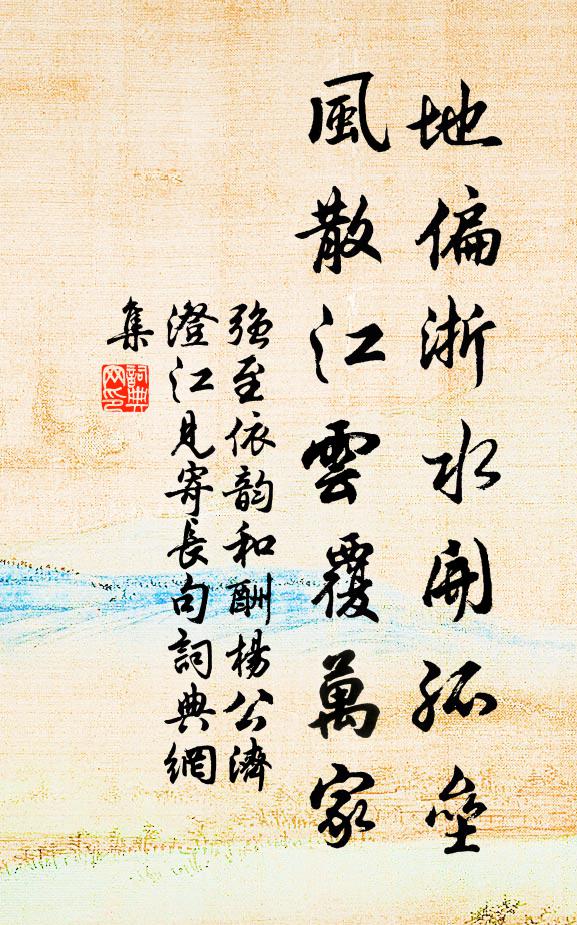 地偏浙水開孤壘
風散江雲覆萬家
強至依韵和酬楊公濟
澄江見寄長句詞典網
集
詞典
网印